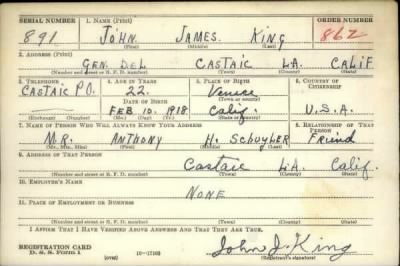 SERIAL NUMBER 1. NAME (Print) ORDER NUMBER
891 JOHN JAMES KING 862
(First) (Middle) (Last)
2. ADDRESS (Print)
GEN. DEL CASTAIC L.A. CALIF
(Number and street or R. F. D. number) (Town) (County) (State)
3. TELEPHONE 4. AGE IN YEARS 5. PLACE OF BIRTH 6. COUNTRY OF CITIZENSHIP
CASTAIC P.O. 22. Venice
DATE OF BIRTH (Town or county)
FEB 10. 1918 Calif. U.S.A.
(Exchange) (Number) (Mo.) (Day) (Yr.) (State or country)
7. NAME OF PERSON WHO WILL ALWAYS KNOW YOUR ADDRESS 8. RELATIONSHIP OF THAT PERSON
MR. ANTHONY H. Schuyler Friend
(Mr., Mrs., Miss) (First) (Middle) (Last)
9. ADDRESS OF THAT PERSON
Castaic L.A. Calif.
(Number and street or R. F. D. number) (Town) (County) (State)
10. EMPLOYER'S NAME
NONE
11. PLACE OF EMPLOYMENT OR BUSINESS
(Number and street or R. F. D. number) (Town) (County) (State)
I AFFIRM THAT I HAVE VERIFIED ABOVE ANSWERS AND THAT THEY ARE TRUE.
REGISTRATION CARD
D. S. S. Form 1 (over) John J. King
(Registrant's signature)